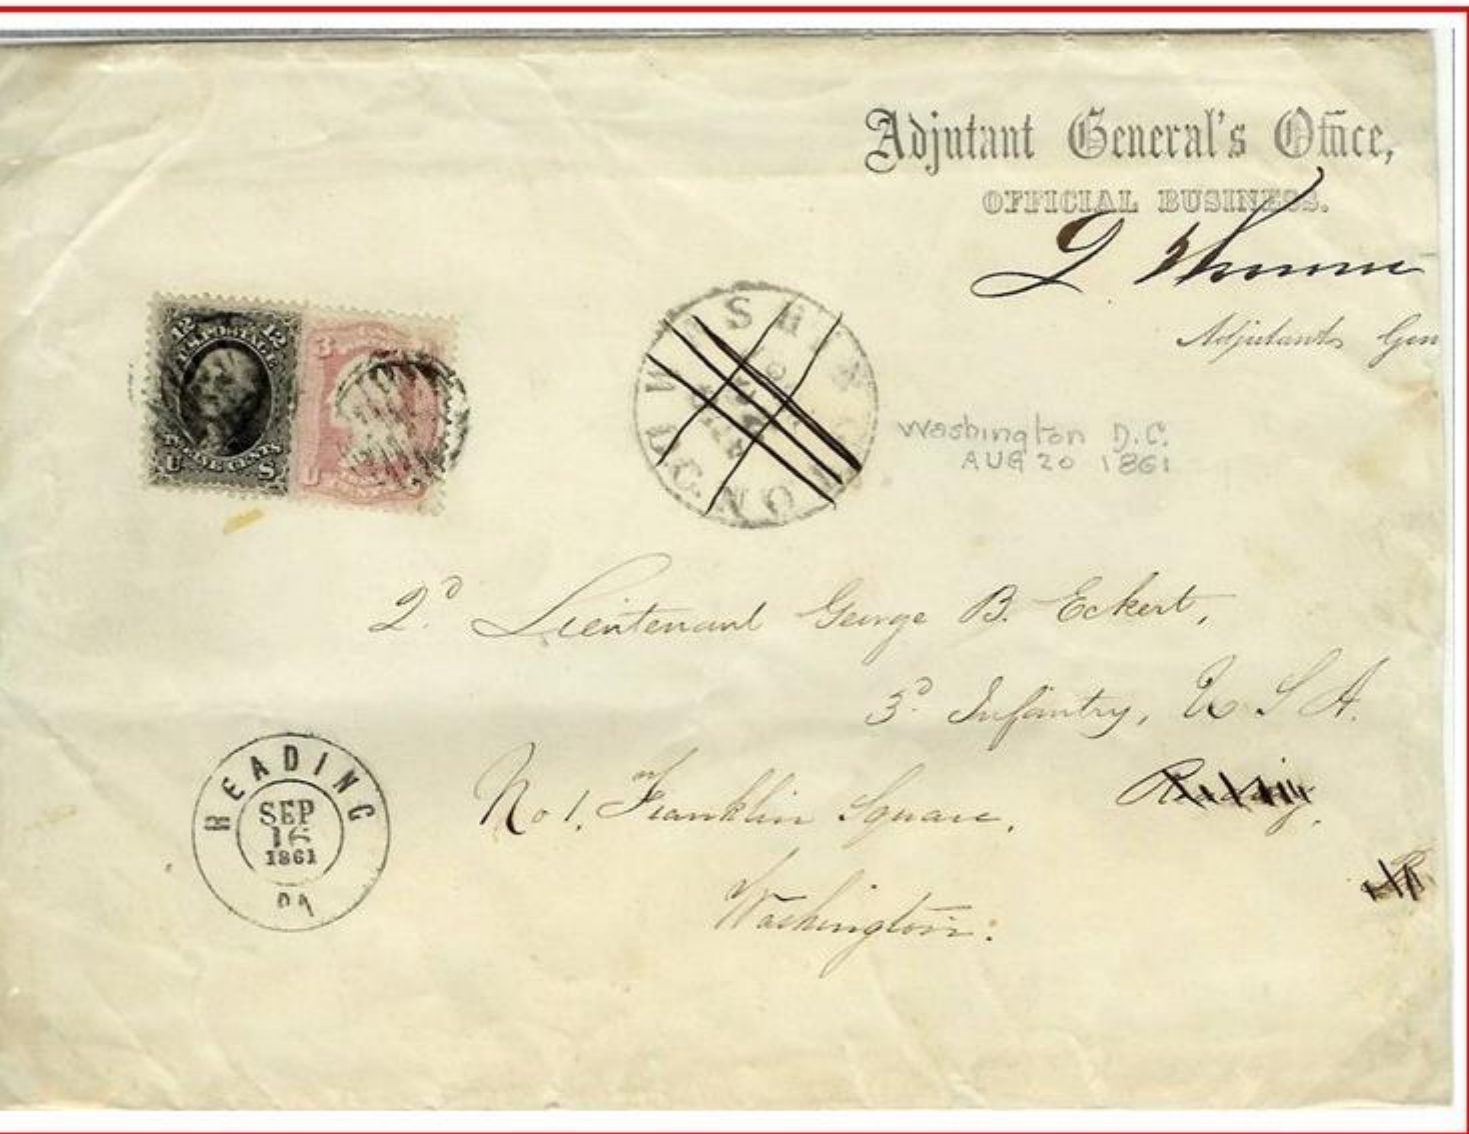 Adjutant General's Office,
OFFICIAL BUSINESS.
Adjutant Gen
12 12
U.S. POSTAGE
TWELVE CENTS
U S
3
U
WASHINGTON
D.C.
Washington D.C.
AUG 20 1861
2d Lieutenant George B. Eckert,
3d Infantry, U.S.A.
No 1, Franklin Square,
Reading,
Washington.
READING
SEP
16
1861
PA